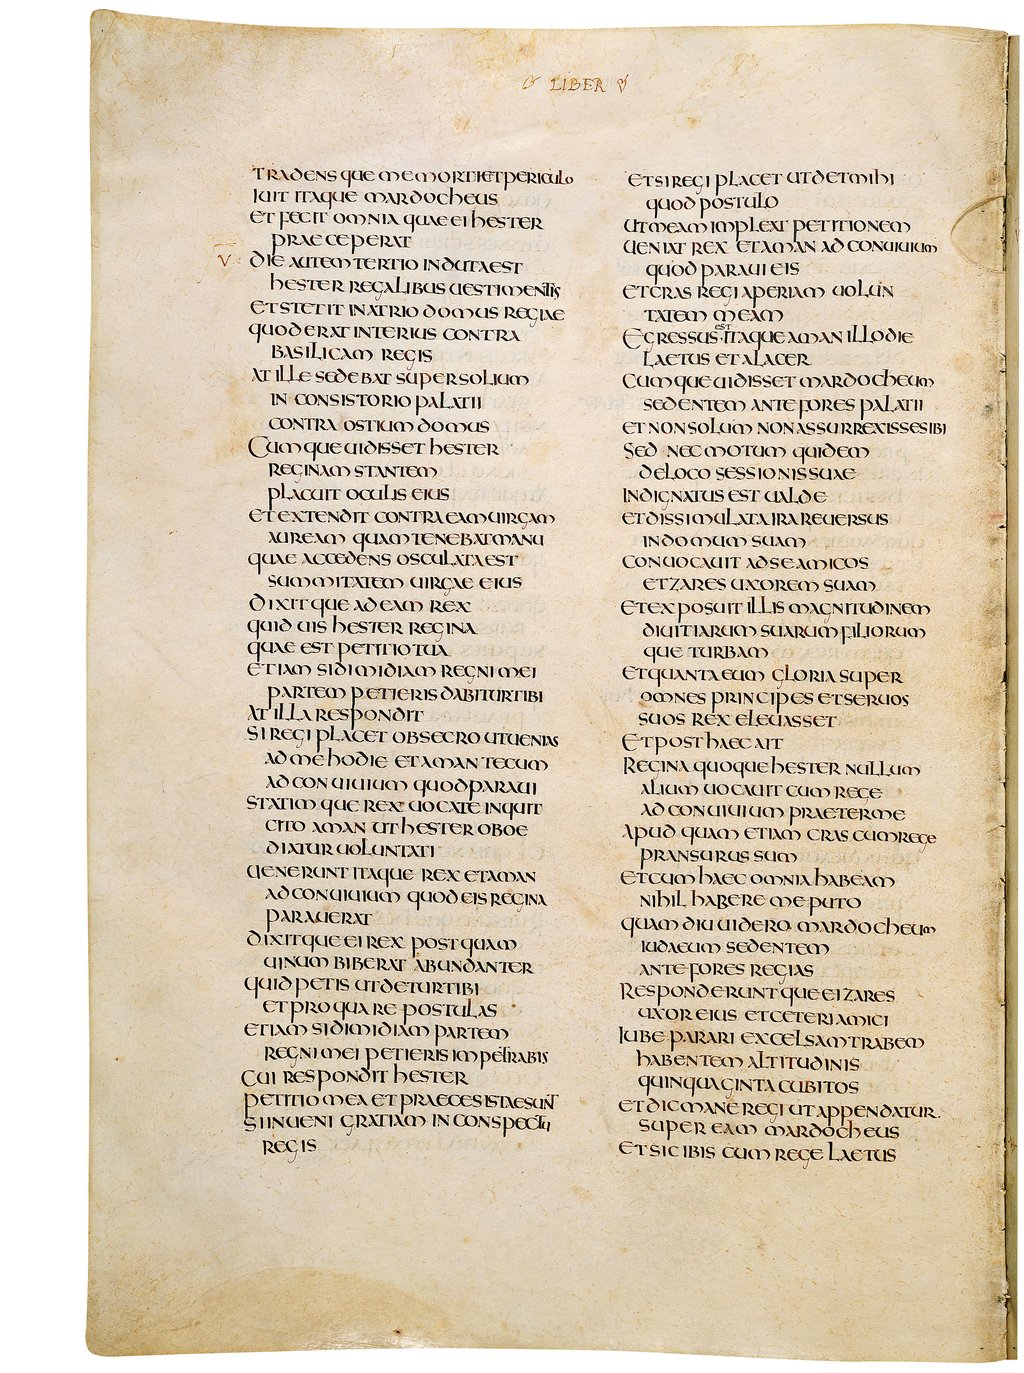 LIBER
TRADENSQUE ME MORTI ET PERICULO
IUIT ITAQUE MARDOCHEUS
ET FECIT OMNIA QUAE EI HESTER
PRAECEPERAT
V DIE AUTEM TERTIO INDUTA EST
HESTER REGALIBUS UESTIMENTIS
ET STETIT IN ATRIO DOMUS REGIAE
QUOD ERAT INTERIUS CONTRA
BASILICAM REGIS
AT ILLE SEDEBAT SUPER SOLIUM
IN CONSISTORIO PALATII
CONTRA OSTIUM DOMUS
CUMQUE UIDISSET HESTER
REGINAM STANTEM
PLACUIT OCULIS EIUS
ET EXTENDIT CONTRA EAM UIRGAM
AUREAM QUAM TENEBAT MANU
QUAE ACCEDENS OSCULATA EST
SUMMITATEM UIRGAE EIUS
DIXITQUE AD EAM REX
QUID UIS HESTER REGINA
QUAE EST PETITIO TUA
ETIAM SI DIMIDIAM REGNI MEI
PARTEM PETIERIS DABITUR TIBI
AT ILLA RESPONDIT
SI REGI PLACET OBSECRO UT UENIAS
AD ME HODIE ET AMAN TECUM
AD CONUIUIUM QUOD PARAUI
STATIMQUE REX UOCATE INQUIT
CITO AMAN UT HESTER OBOE
DIATUR UOLUNTATI
UENERUNT ITAQUE REX ET AMAN
AD CONUIUIUM QUOD EIS REGINA
PARAUERAT
DIXITQUE EI REX POSTQUAM
UINUM BIBERAT ABUNDANTER
QUID PETIS UT DETUR TIBI
ET PRO QUA RE POSTULAS
ETIAM SI DIMIDIAM PARTEM
REGNI MEI PETIERIS IMPETRABIS
CUI RESPONDIT HESTER
PETITIO MEA ET PRAECES ISTAE SUNT
SI INUENI GRATIAM IN CONSPECTU
REGIS
ET SI REGI PLACET UT DET MIHI
QUOD POSTULO
UT MEAM IMPLEAT PETITIONEM
UENIAT REX ET AMAN AD CONUIUIUM
QUOD PARAUI EIS
ET CRAS REGI APERIAM UOLUN
TATEM MEAM
EGRESSUS EST ITAQUE AMAN ILLO DIE
LAETUS ET ALACER
CUMQUE UIDISSET MARDOCHEUM
SEDENTEM ANTE FORES PALATII
ET NON SOLUM NON ASSURREXISSE SIBI
SED NEC MOTUM QUIDEM
DE LOCO SESSIONIS SUAE
INDIGNATUS EST UALDE
ET DISSIMULATA IRA REUERSUS
IN DOMUM SUAM
CONUOCAUIT AD SE AMICOS
ET ZARES UXOREM SUAM
ET EXPOSUIT ILLIS MAGNITUDINEM
DIUITIARUM SUARUM FILIORUM
QUE TURBAM
ET QUANTA EUM GLORIA SUPER
OMNES PRINCIPES ET SERUOS
SUOS REX ELEUASSET
ET POST HAEC AIT
REGINA QUOQUE HESTER NULLUM
ALIUM UOCAUIT CUM REGE
AD CONUIUIUM PRAETER ME
APUD QUAM ETIAM CRAS CUM REGE
PRANSURUS SUM
ET CUM HAEC OMNIA HABEAM
NIHIL HABERE ME PUTO
QUAMDIU UIDERO MARDOCHEUM
IUDAEUM SEDENTEM
ANTE FORES REGIAS
RESPONDERUNTQUE EI ZARES
UXOR EIUS ET CETERI AMICI
IUBE PARARI EXCELSAM TRABEM
HABENTEM ALTITUDINIS
QUINQUAGINTA CUBITOS
ET DIC MANE REGI UT APPENDATUR
SUPER EAM MARDOCHEUS
ET SIC IBIS CUM REGE LAETUS